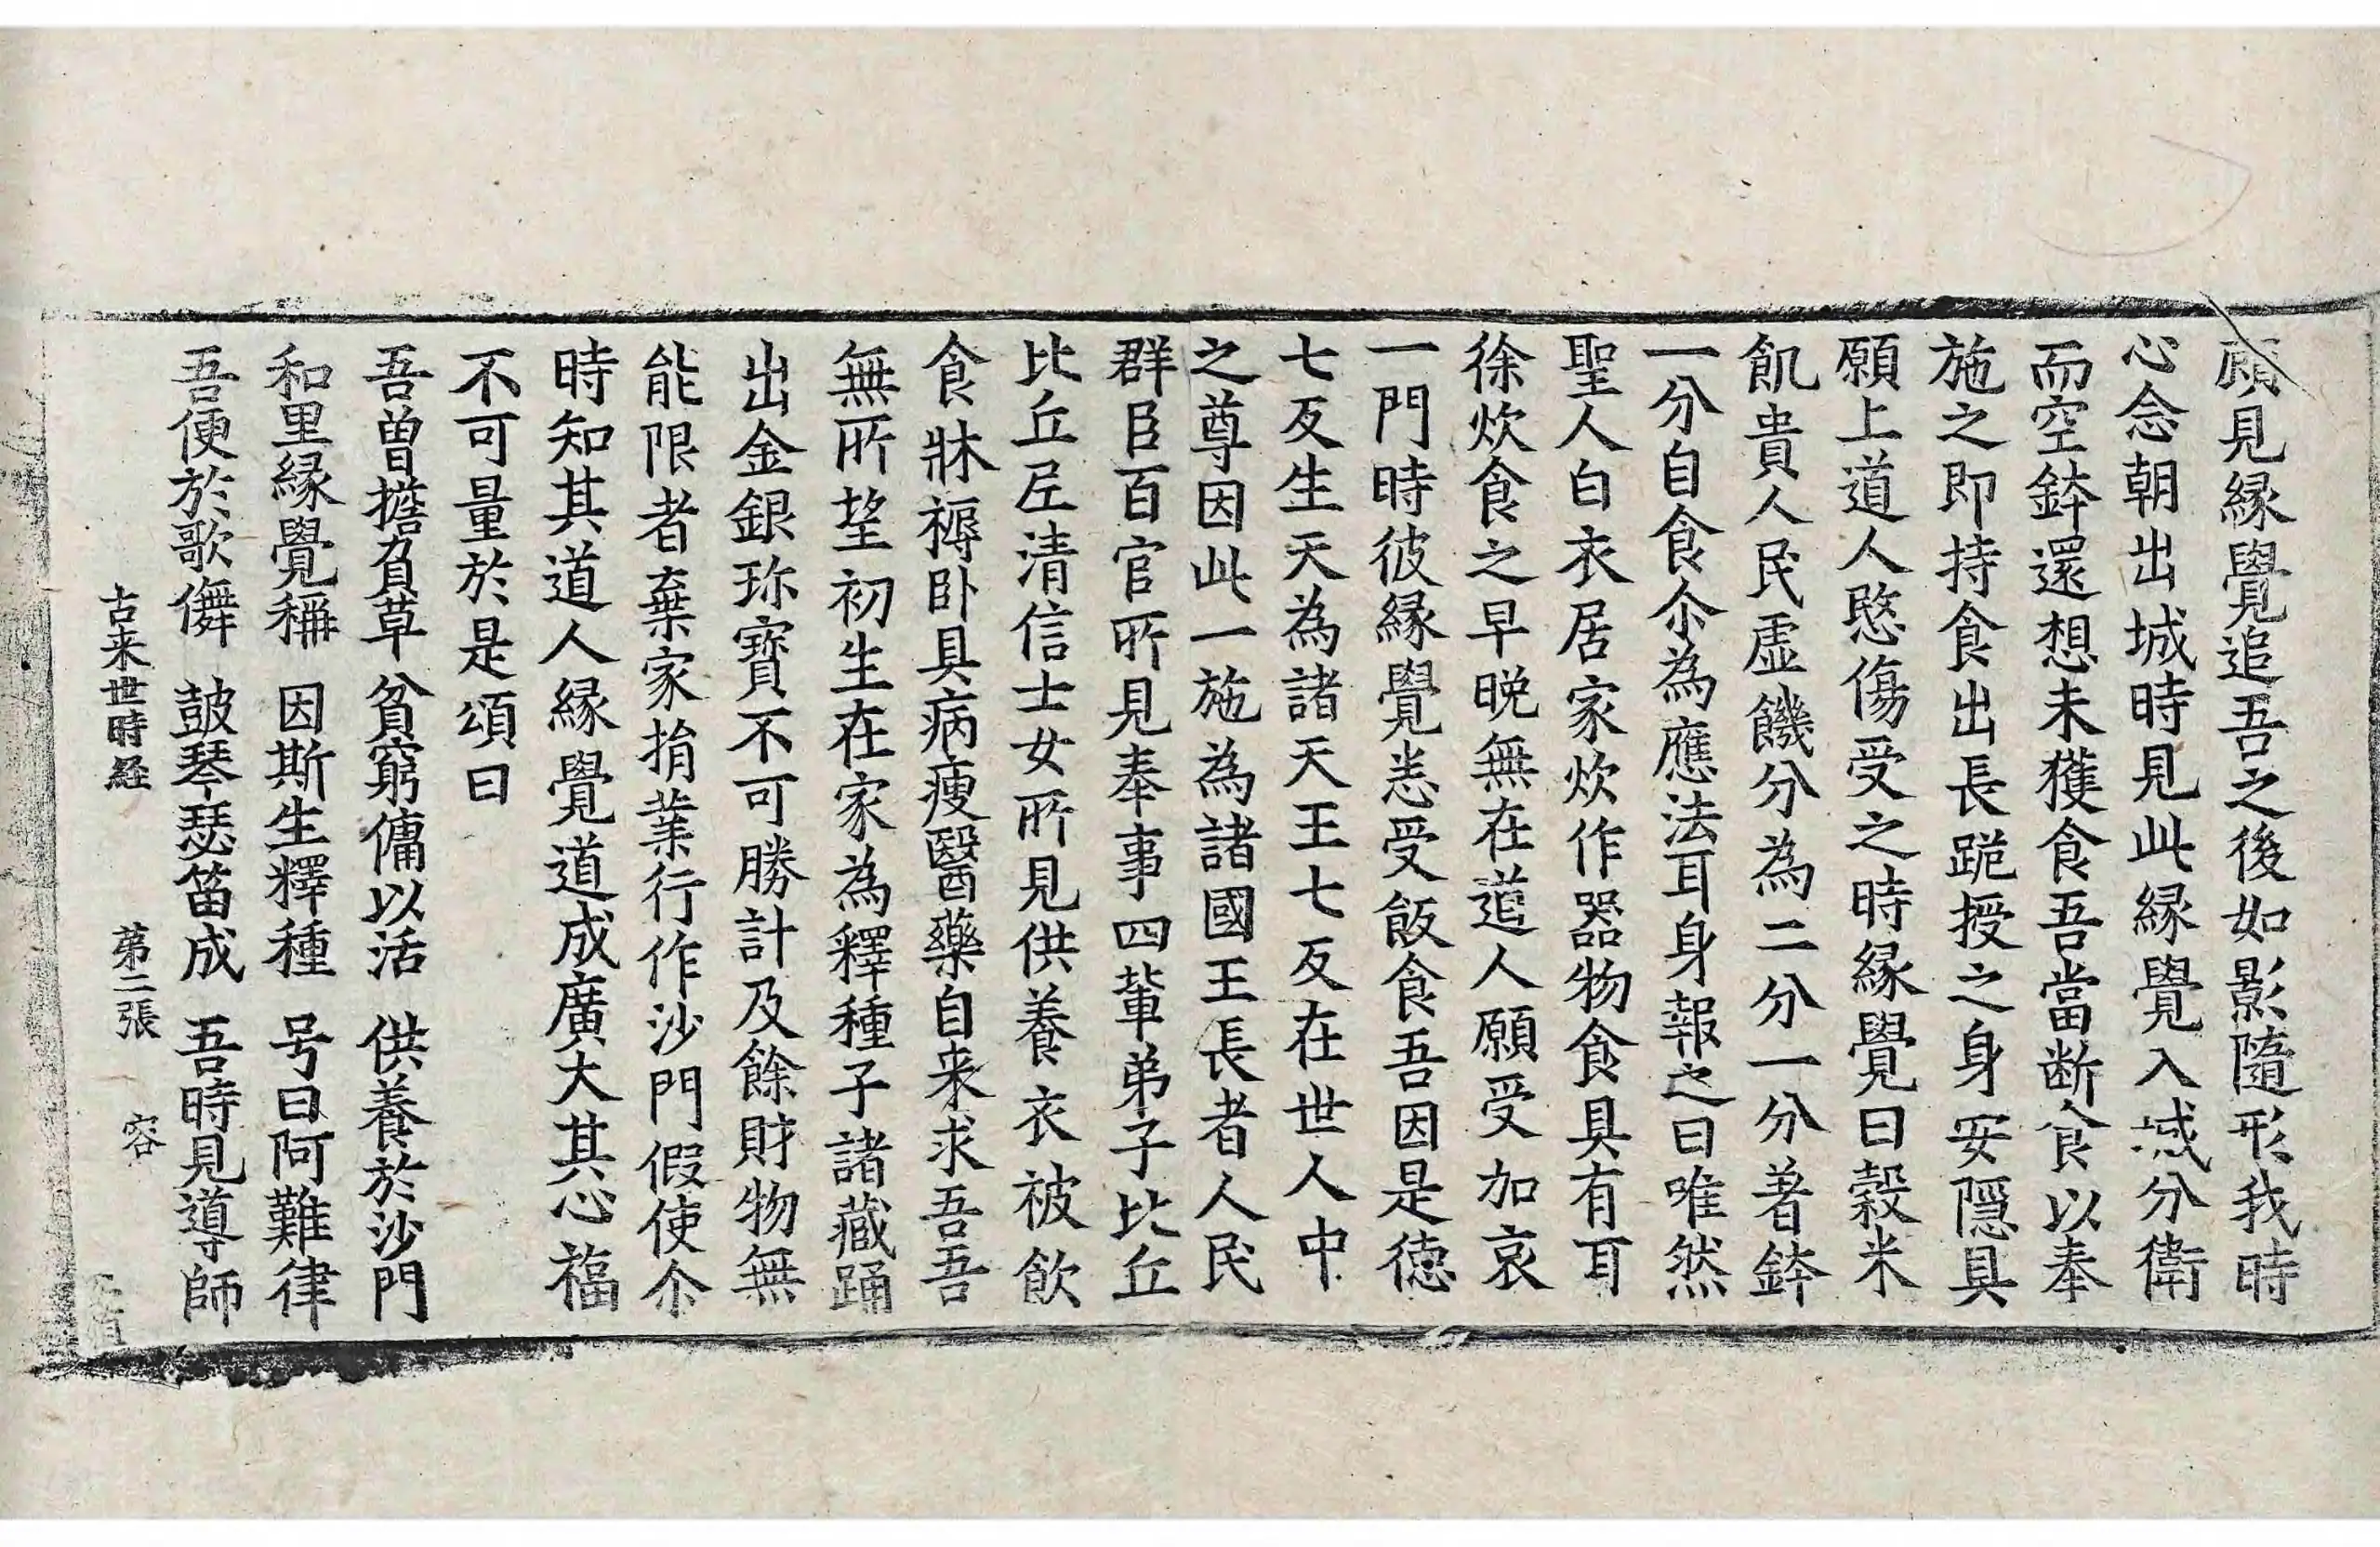 顧見縁覺追吾之後如影隨形我時
心念朝出城時見此縁覺入城分衛
而空鉢還想未獲食吾當断食以奉
施之即持食出長跪授之身安隱具
願上道人愍傷受之時縁覺曰穀米
飢貴人民虛饑分為二分一分著鉢
一分自食尒為應法耳身報之曰唯然
聖人白衣居家炊作器物食具有耳
徐炊食之早晚無在道人願受加哀
一門時彼縁覺恙受飯食吾因是德
七反生天為諸天王七反在世人中
之尊因此一施為諸國王長者人民
群臣百官所見奉事四輩弟子比丘
比丘尼清信士女所見供養衣被飲
食牀褥卧具病瘦醫藥自来求吾吾
無所望初生在家為釋種子諸藏踊
出金銀珎寶不可勝計及餘財物無
能限者棄家捐業行作沙門假使尒
時知其道人縁覺道成廣大其心福
不可量於是頌曰
吾曽擔負草 貧窮傭以活 供養於沙門
和里縁覺稱 因斯生釋種 号曰阿難律
吾便於歌儛 鼓琴瑟笛成 吾時見導師
古来世時経 第二張 容